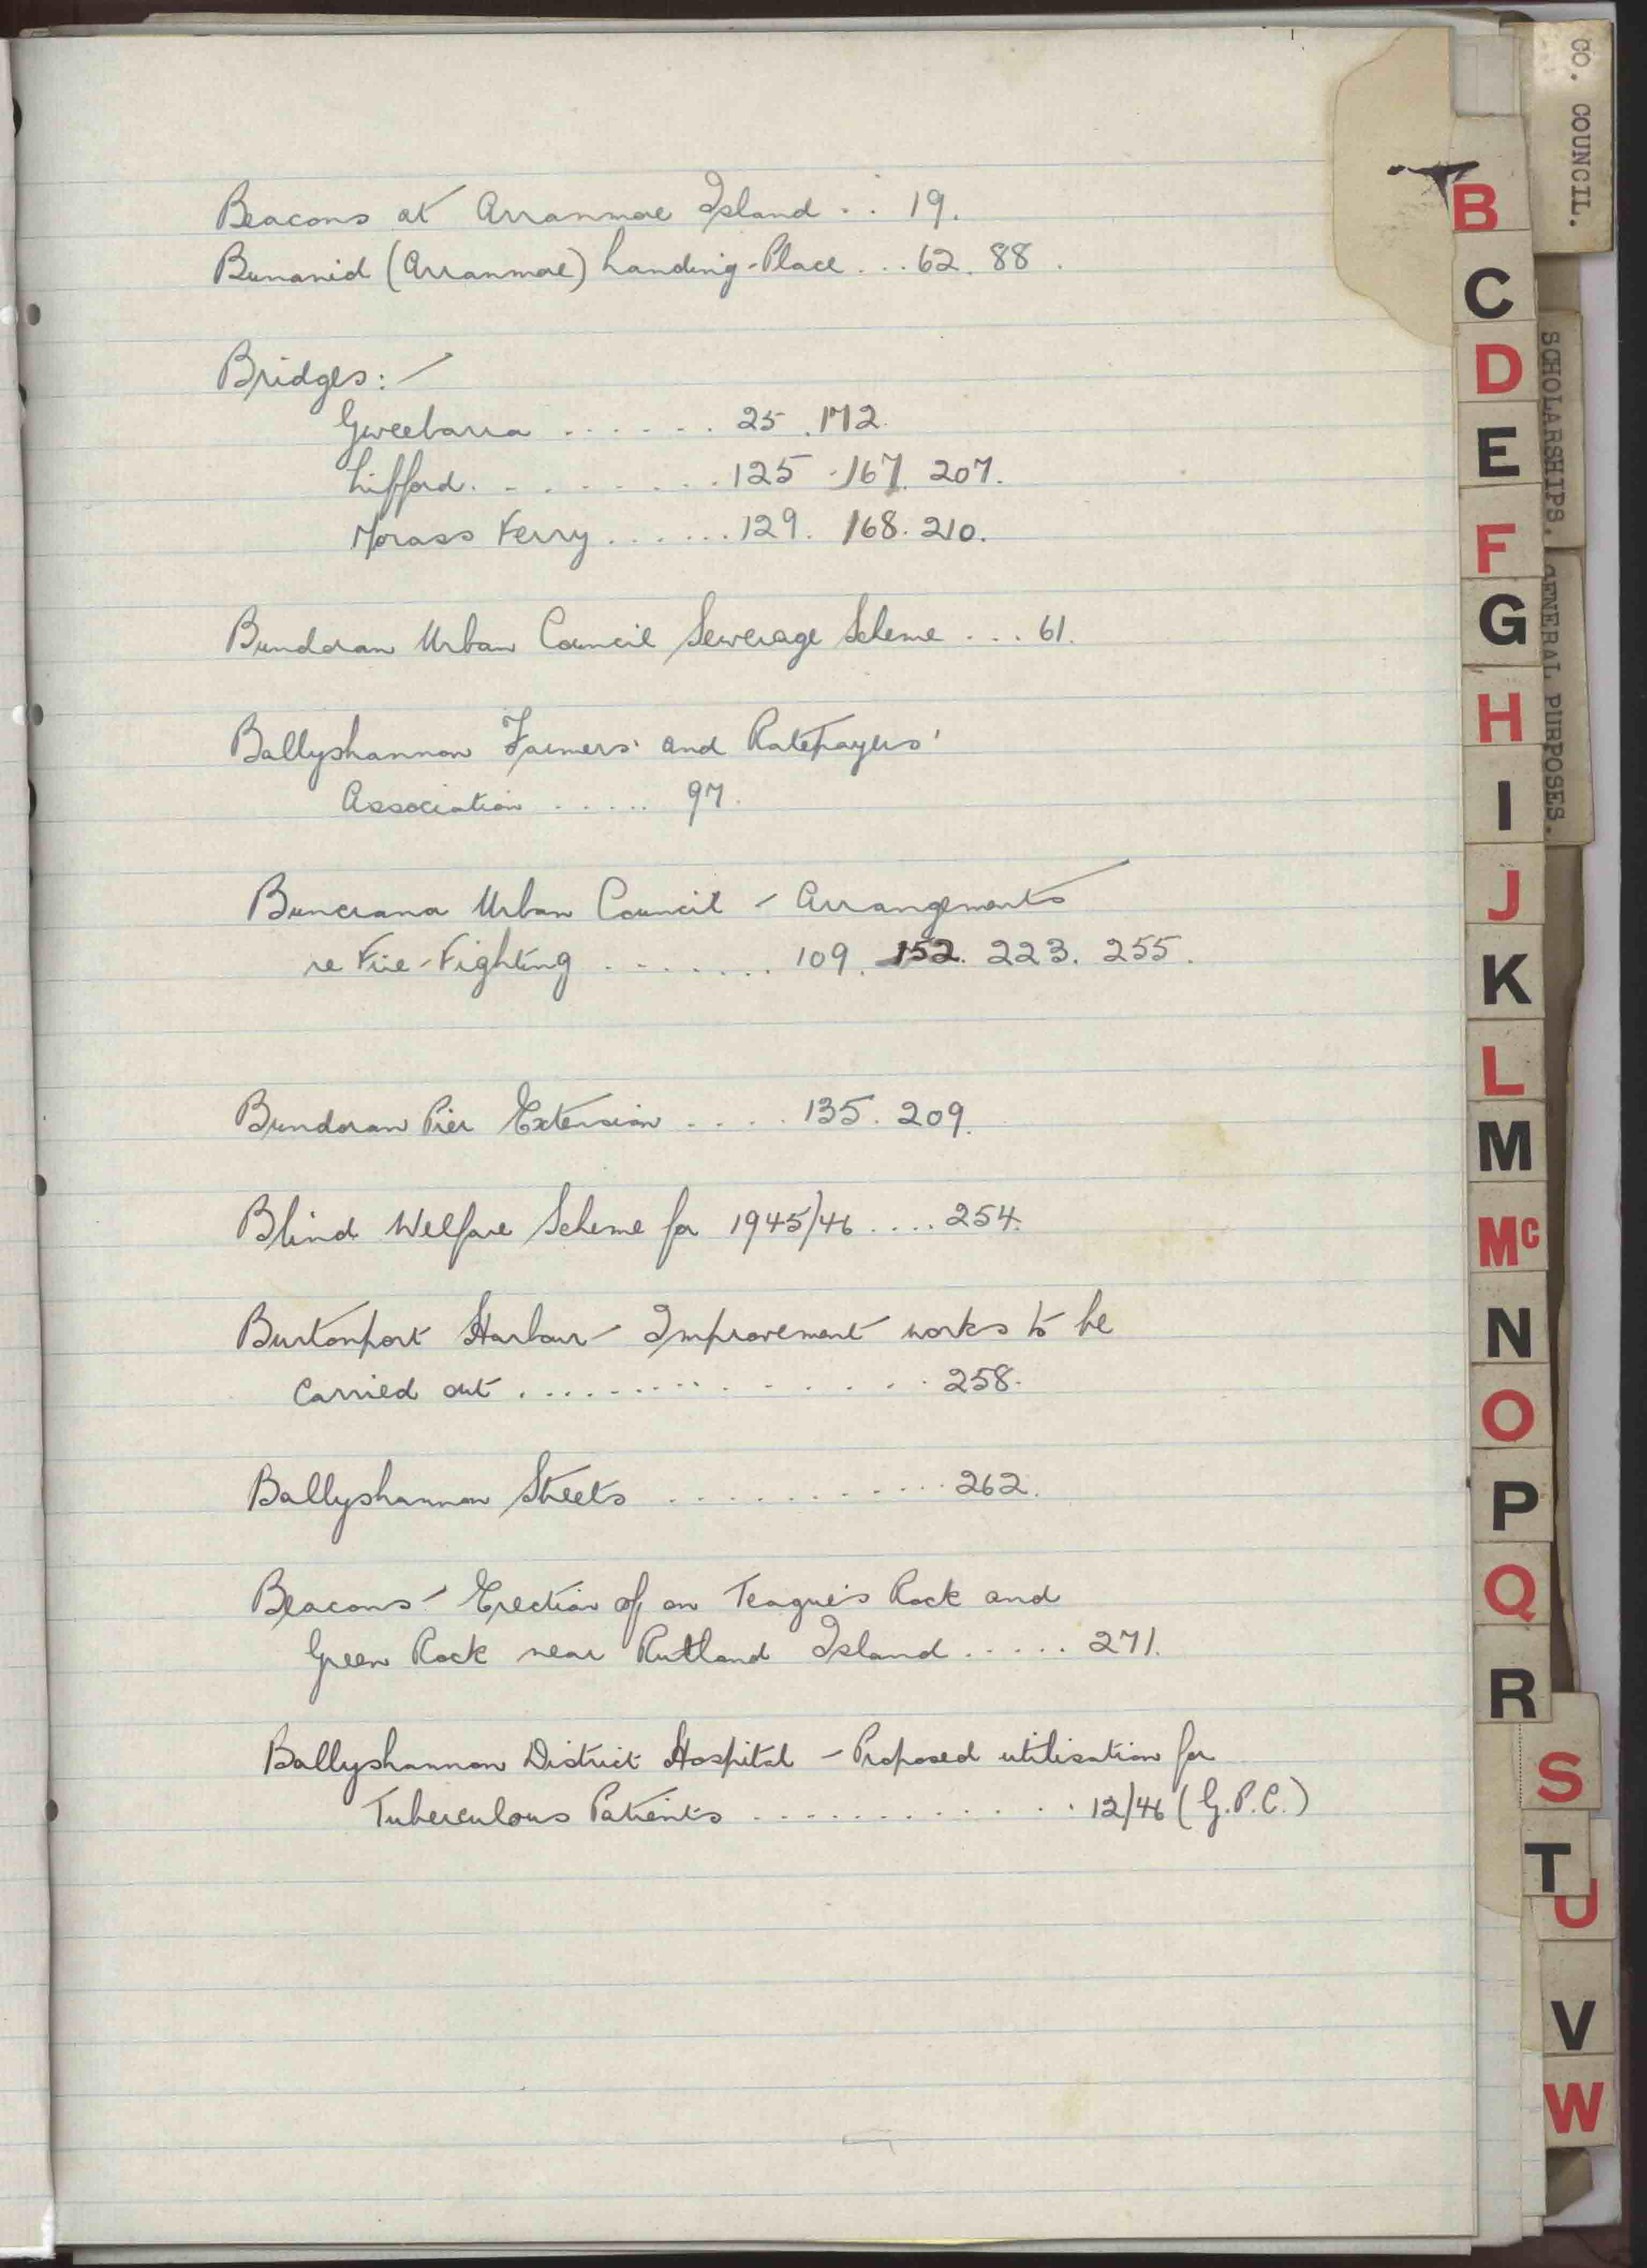 Beacons at Arranmore Island . . 19.
Bunanid (Arranmore) Landing-Place . . . 62. 88.
Bridges:-
Gweebarra . . . . . . 25. 172.
Lifford . . . . . . . . 125. 167. 207.
Morass Ferry . . . . . . . 129. 168. 210.
Bundoran Urban Council Sewerage Scheme . . . 61.
Ballyshannon Farmers' and Ratepayers'
Association . . . . . . 97.
Buncrana Urban Council - Arrangements
re Fire-Fighting . . . . . . . . 109. 152. 223. 255.
Bundoran Pier Extension . . . . . 135. 209.
Blind Welfare Scheme for 1945/46 . . . . 254.
Burtonport Harbour - Improvement works to be
carried out . . . . . . . . . . . . . . . 258.
Ballyshannon Streets . . . . . . . . . . . . 262.
Beacons - Erection of on Teague's Rock and
Green Rock near Rutland Island . . . . . 271.
Ballyshannon District Hospital - Proposed utilisation for
Tuberculous Patients . . . . . . . . . . . . 12/46 (G.P.C.)
CO. COUNCIL.
SCHOLARSHIPS.
GENERAL PURPOSES.
B
C
D
E
F
G
H
I
J
K
L
M
Mc
N
O
P
Q
R
S
T
U
V
W